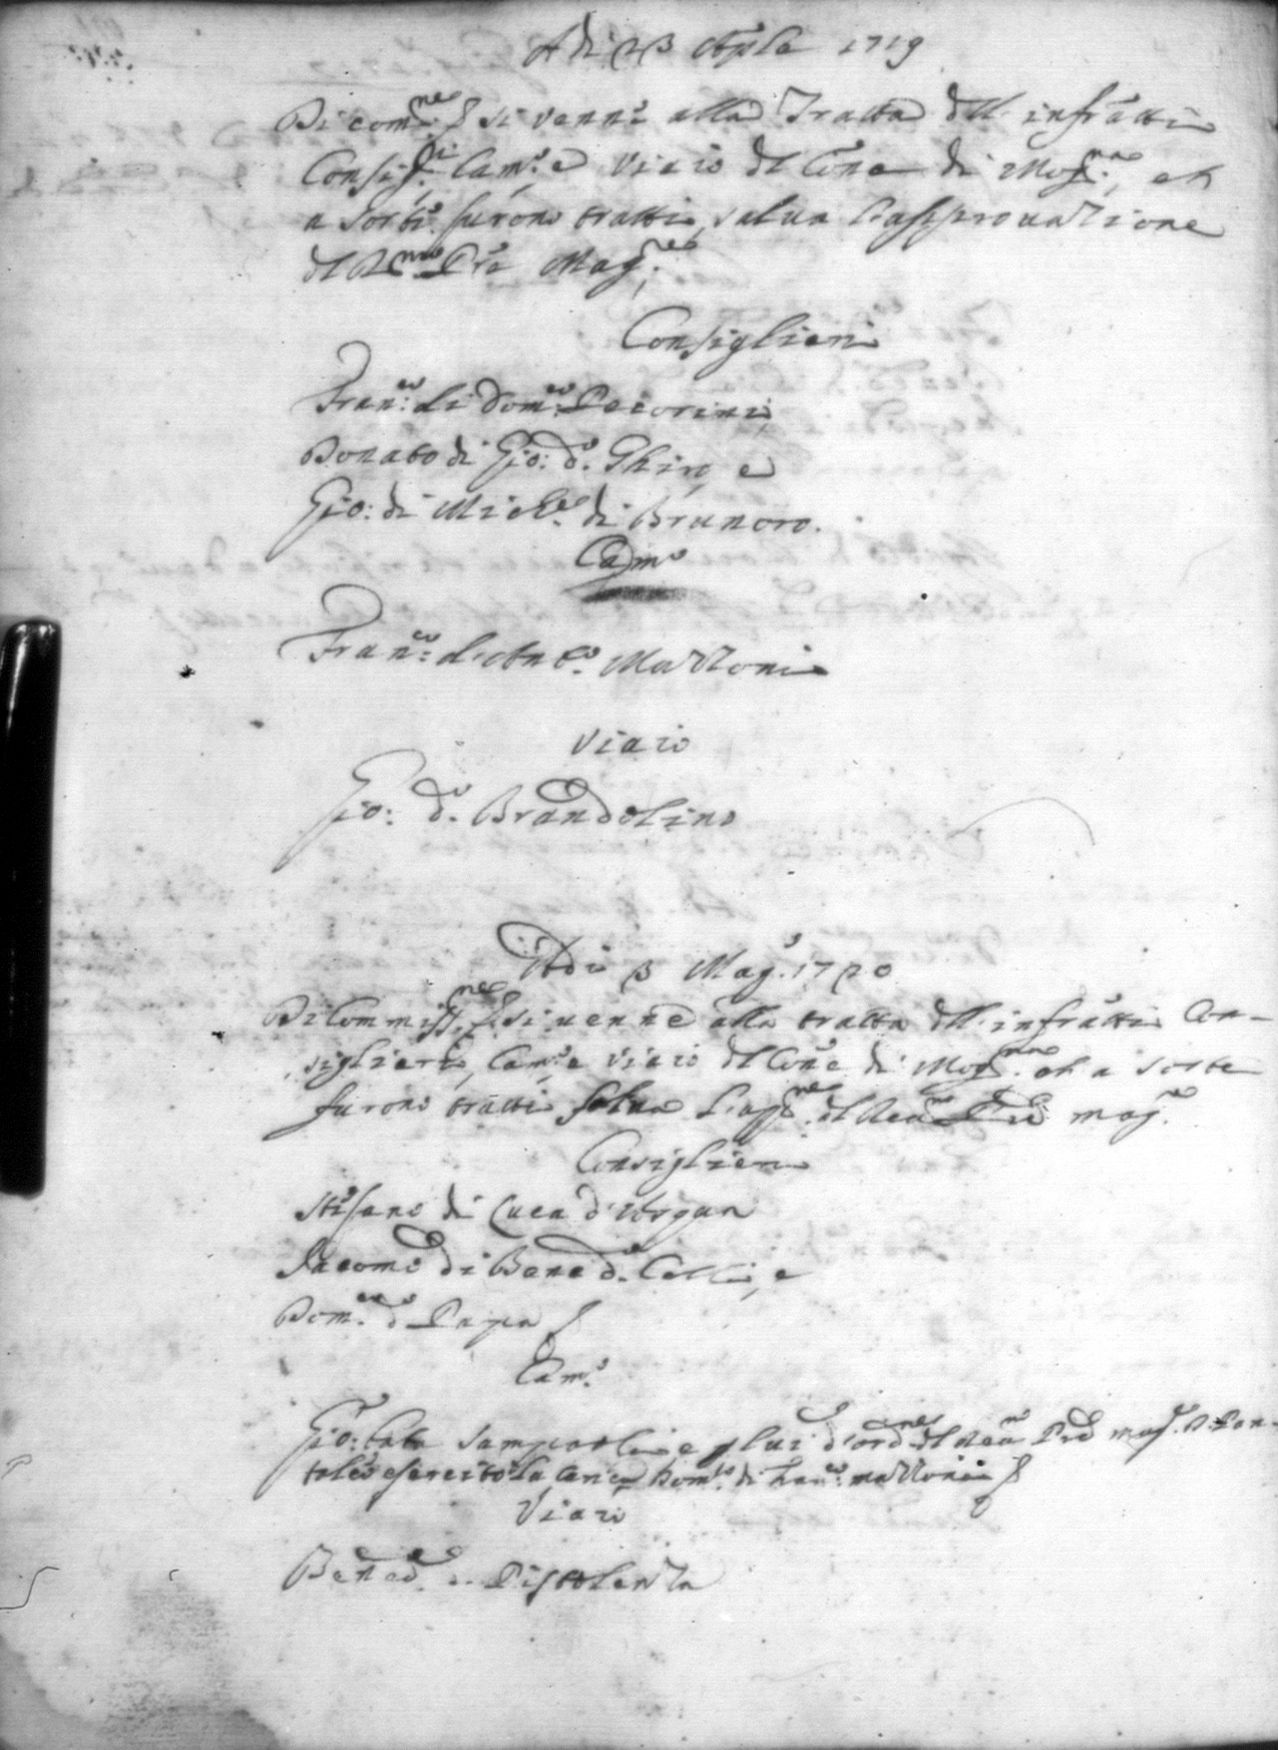 Adi 23 Aprile 1719
Di com.ne si venne alla Tratta dll' infratti
Consig.ri Cam.o e Viaio dl Cone di Mog.na, et
a sorte furono tratti, salva l'approvazione
dl R.mo Pre Mag.re
Consiglieri
Fran.co di Dom.co Pecorini
Donato di Gio: d.o Ghiro, e
Gio: di Mich.e di Brunoro.
Cam.o
Fran.co d'Ant.o Mazzoni
Viaio
Gio: d.o Brandolino
Adi 3 Mag.o 1720
Di Commiss.ne si venne alla tratta dll' infratti Con-
siglieri, Cam.o e Viaio dl Cone di Mog.na et a sorte
furono tratti salva l'app.ne dl Rev.mo Pre mag.re
Consiglieri
Stefano di Luca d'
Jacomo di Bened.o Celli, e
Dom.co d.o Papa
Cam.o
Gio: Bat.a Sampaoli e p lui d'ord.ne dl Rev.mo Pre mag.re
Dom.co di Fran.co mazzoni
Viaio
Bened.o Pistolenza